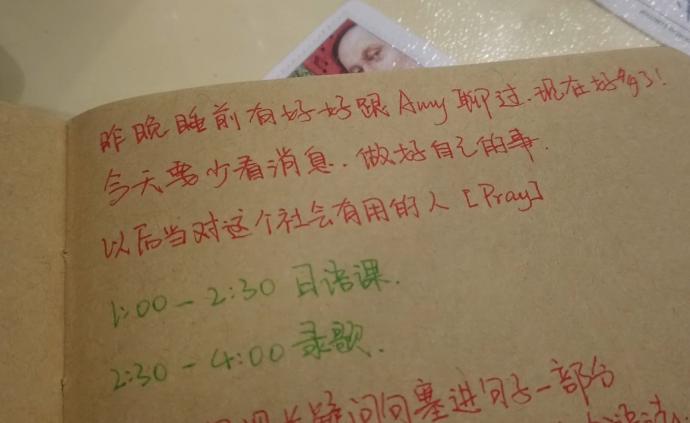 昨晚睡前有好好跟Amy聊过.现在好多了!
今天要少看消息.做好自己的事.
以后当对这个社会有用的人[Pray]
1:00-2:30 日语课.
2:30-4:00 录歌.
疑问句塞进句子一部分